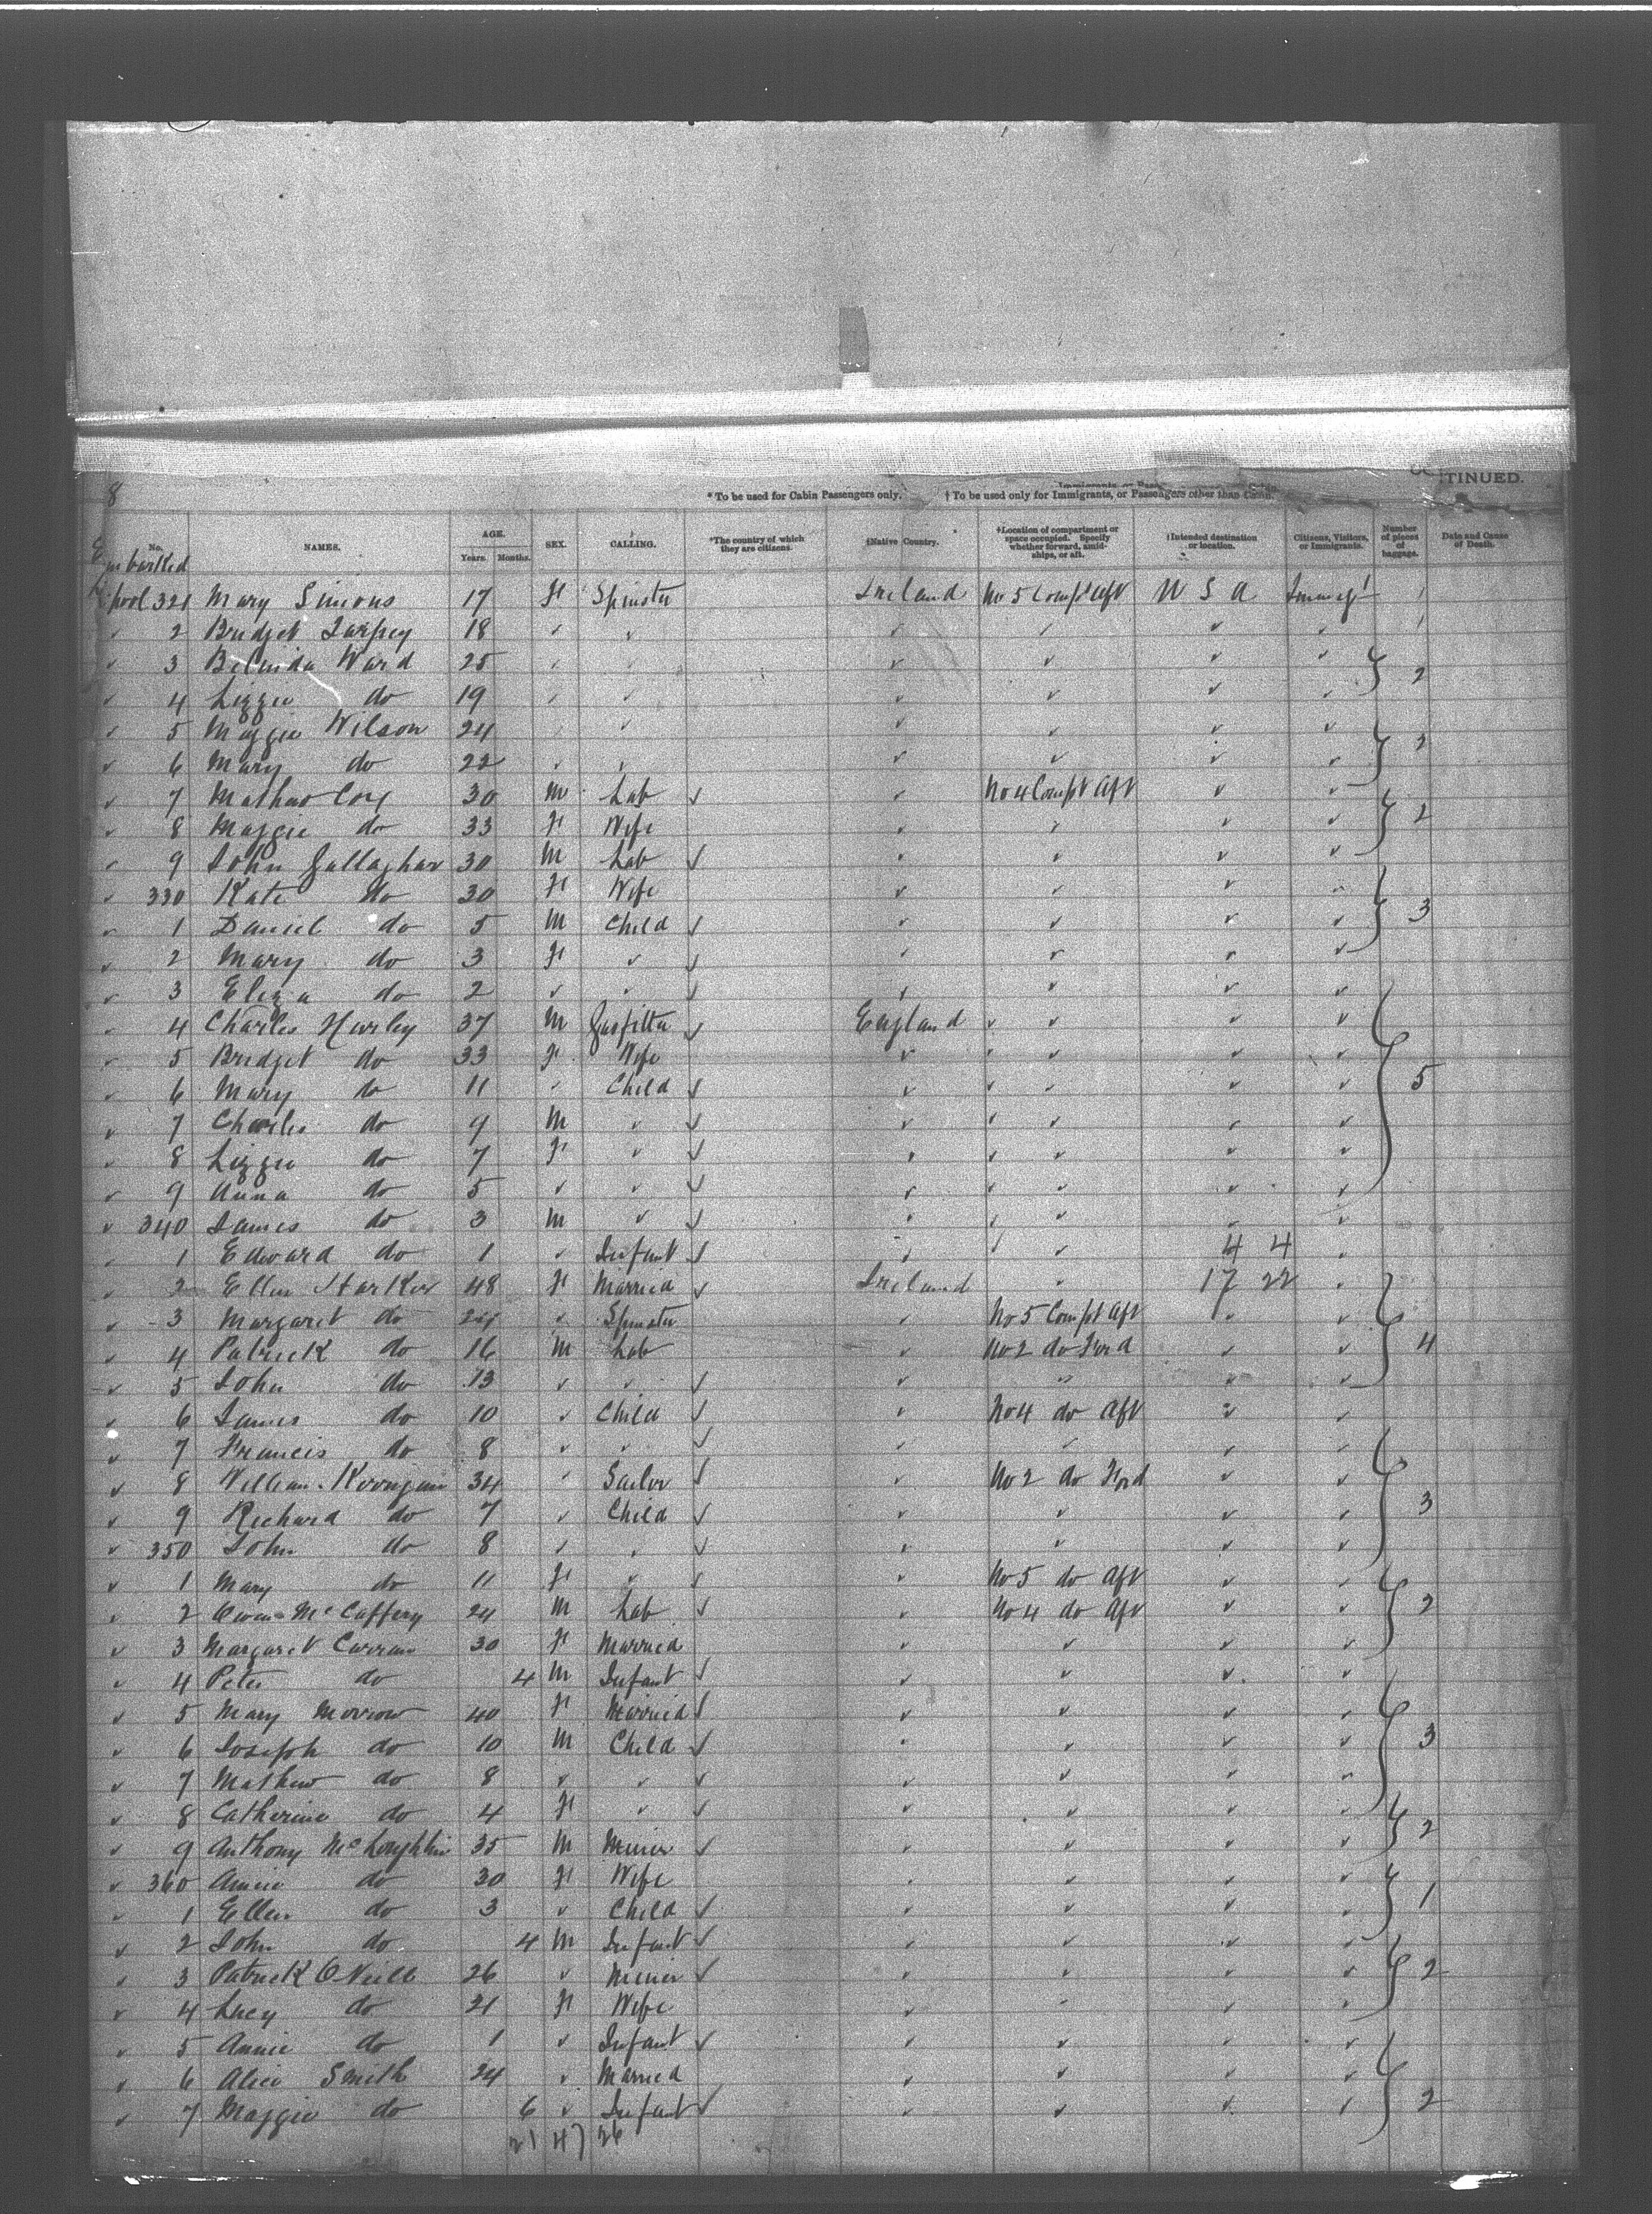 8
TINUED.
* To be used for Cabin Passengers only. † To be used only for Immigrants, or Passengers other than Cabin.
No. NAMES. AGE. Years. Months. SEX. CALLING. *The country of which they are citizens. †Native Country. †Location of compartment or space occupied. Specify whether forward, amidships, or aft. †Intended destination or location. Citizens, Visitors, or Immigrants. Number of pieces of baggage. Date and Cause of Death.
Embarked
L'pool 321 Mary Simons 17 F Spinster Ireland No 5 Compt Aft U S A Immigt 1
2 Bridget Tarpey 18 1
3 Belinda Ward 25 2
4 Lizzie do 19
5 Maggie Wilson 24 2
6 Mary do 22
7 Coy 30 M Lab No 4 Compt Aft 2
8 Maggie do 33 F Wife
9 John Gallagher 30 M Lab
330 Kate do 30 F Wife 3
1 Daniel do 5 M Child
2 Mary do 3 F
3 Eliza do 2
4 Charles Hurley 37 M Gasfitter England
5 Bridget do 33 F Wife
6 Mary do 11 Child 5
7 Charles do 9 M
8 Lizzie do 7 F
9 Anna do 5
340 James do 3 M
1 Edward do 1 Infant 4 4
2 Ellen Harker 48 F Married Ireland 17 22
3 Margaret do 24 Spinster No 5 Compt Aft
4 Patrick do 16 M Lab No 2 do Ford 4
5 John do 13
6 James do 10 Child No 4 do Aft
7 Francis do 8
8 William 34 Sailor No 2 do Ford
9 Richard do 7 Child 3
350 John do 8
1 Mary do 11 F No 5 do Aft
2 Owen McCaffery 24 M Lab No 4 do Aft 2
3 Margaret Curran 30 F Married
4 Peter do 4 M Infant
5 Mary Morrow 40 F Married
6 Joseph do 10 M Child 3
7 Mathew do 8
8 Catherine do 4 F
9 Anthony McLoughlin 35 M Miner 2
360 Annie do 30 F Wife
1 Ellen do 3 Child 1
2 John do 4 M Infant
3 Patrick O'Neill 26 Miner 2
4 Lucy do 21 F Wife
5 Annie do 1 Infant
6 Alice Smith 24 Married
7 Maggie do 6 Infant 2
21 47 26